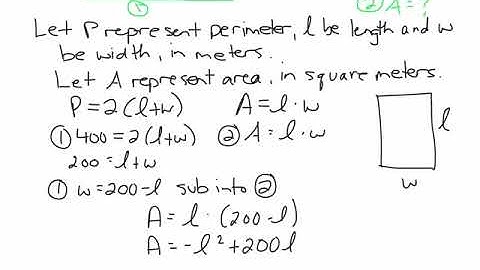 ① ② A = ?
Let P represent perimeter, l be length and w
be width, in meters.
Let A represent area, in square meters.
P = 2(l+w) A = l · w
① 400 = 2(l+w) ② A = l · w
200 = l+w
l
① w = 200 - l sub into ②
w
A = l · (200 - l)
A = -l² + 200l